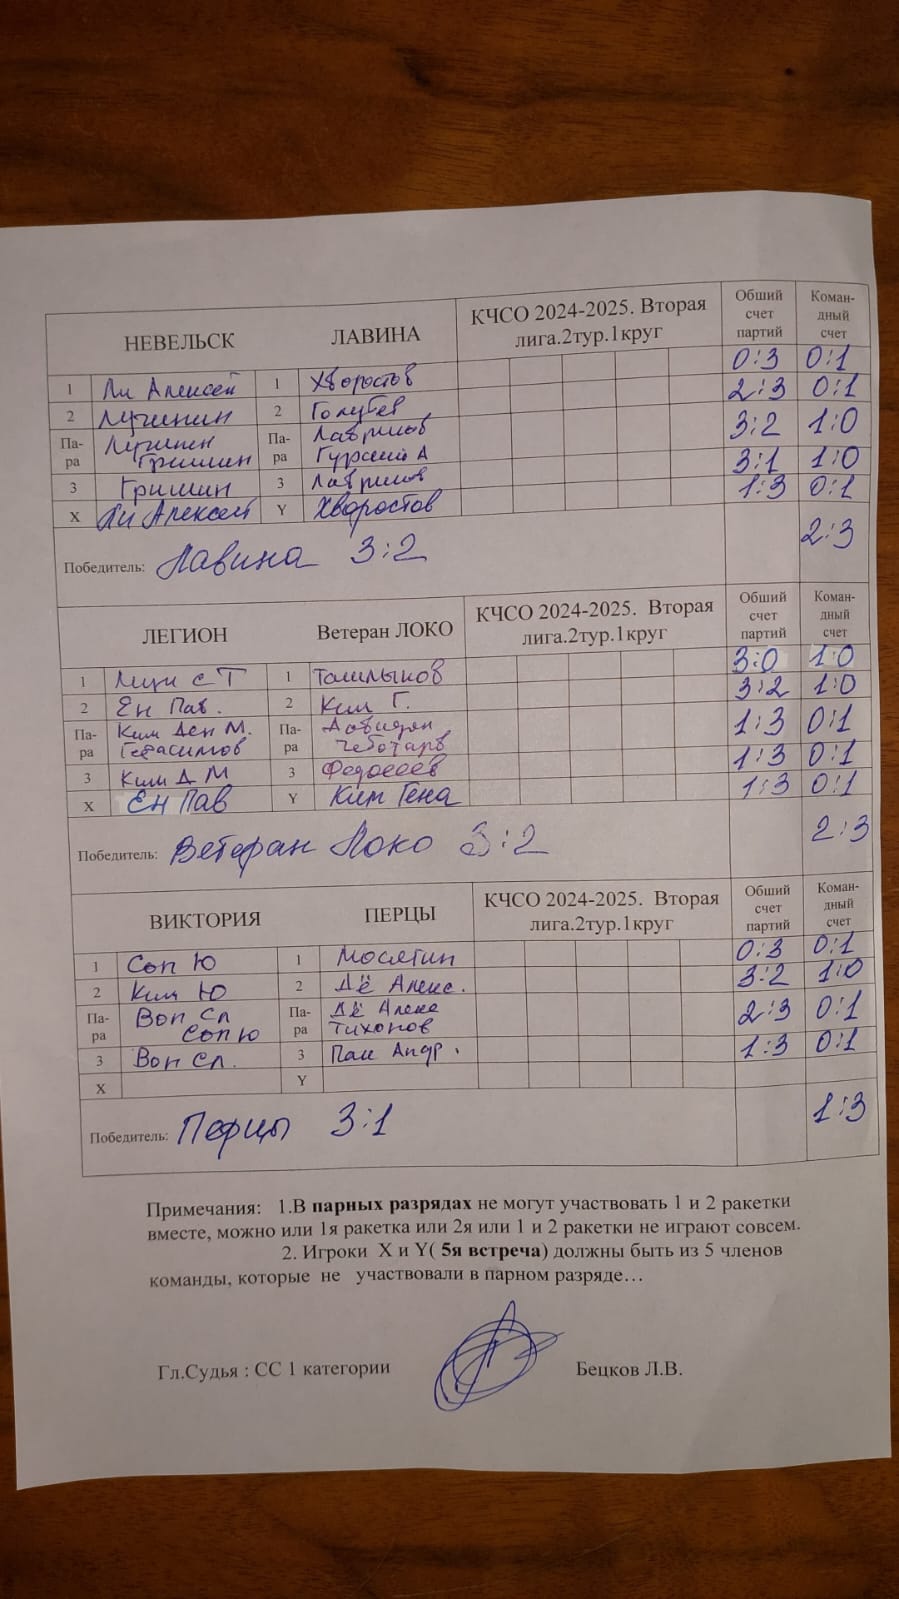 НЕВЕЛЬСК ЛАВИНА КЧСО 2024-2025. Вторая лига.2тур.1круг Обший счет партий Коман-дный счет
1 Ли Алексей 1 Хворостов 0:3 0:1
2 Лучинин 2 Голубев 2:3 0:1
Па-ра Лучинин Гришин Па-ра Лавринов А 3:2 1:0
3 Гришин 3 Лавринов 3:1 1:0
X Ли Алексей Y Хворостов 1:3 0:1
2:3
Победитель: Лавина 3:2
ЛЕГИОН Ветеран ЛОКО КЧСО 2024-2025. Вторая лига.2тур.1круг Обший счет партий Коман-дный счет
1 1 3:0 1:0
2 Ен Пав. 2 Ким Г. 3:2 1:0
Па-ра Ким Ден М. Герасимов Па-ра Давидян 1:3 0:1
3 Ким Д М 3 Федосеев 1:3 0:1
X Ен Пав Y Ким Гена 1:3 0:1
2:3
Победитель: Ветеран Локо 3:2
ВИКТОРИЯ ПЕРЦЫ КЧСО 2024-2025. Вторая лига.2тур.1круг Обший счет партий Коман-дный счет
1 Сон Ю 1 0:3 0:1
2 Ким Ю 2 Дё Алекс. 3:2 1:0
Па-ра Вон Сл Сон Ю Па-ра Дё Алекс Тихонов 2:3 0:1
3 Вон Сл. 3 Пак Андр. 1:3 0:1
X Y
1:3
Победитель: Перцы 3:1
Примечания: 1.В парных разрядах не могут участвовать 1 и 2 ракетки
вместе, можно или 1я ракетка или 2я или 1 и 2 ракетки не играют совсем.
2. Игроки X и Y( 5я встреча) должны быть из 5 членов
команды, которые не участвовали в парном разряде…
Гл.Судья : СС 1 категории Бецков Л.В.